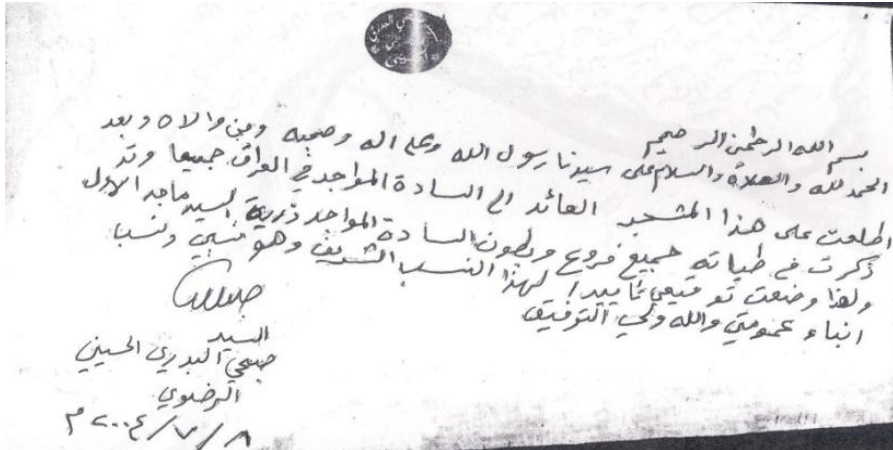 بسم الله الرحمن الرحيم
الحمد لله والصلاة والسلام على سيدنا رسول الله وعلى اله وصحبه ومن والاه وبعد
اطلعت على هذا المشجر العائد الى السادة المواجد في العراق جميعا وقد
ذكرت في طياته جميع فروع وبطون السادة المواجد ذرية السيد ماجد الاول
ولهذا وضعت توقيعي تأييدا لهذا النسب الشريف وهو نسبي ونسب
ابناء عمومتي والله ولي التوفيق
السيد
صبحي البدري الحسيني
الرضوي
٨/٧/٢٠٠٤ م